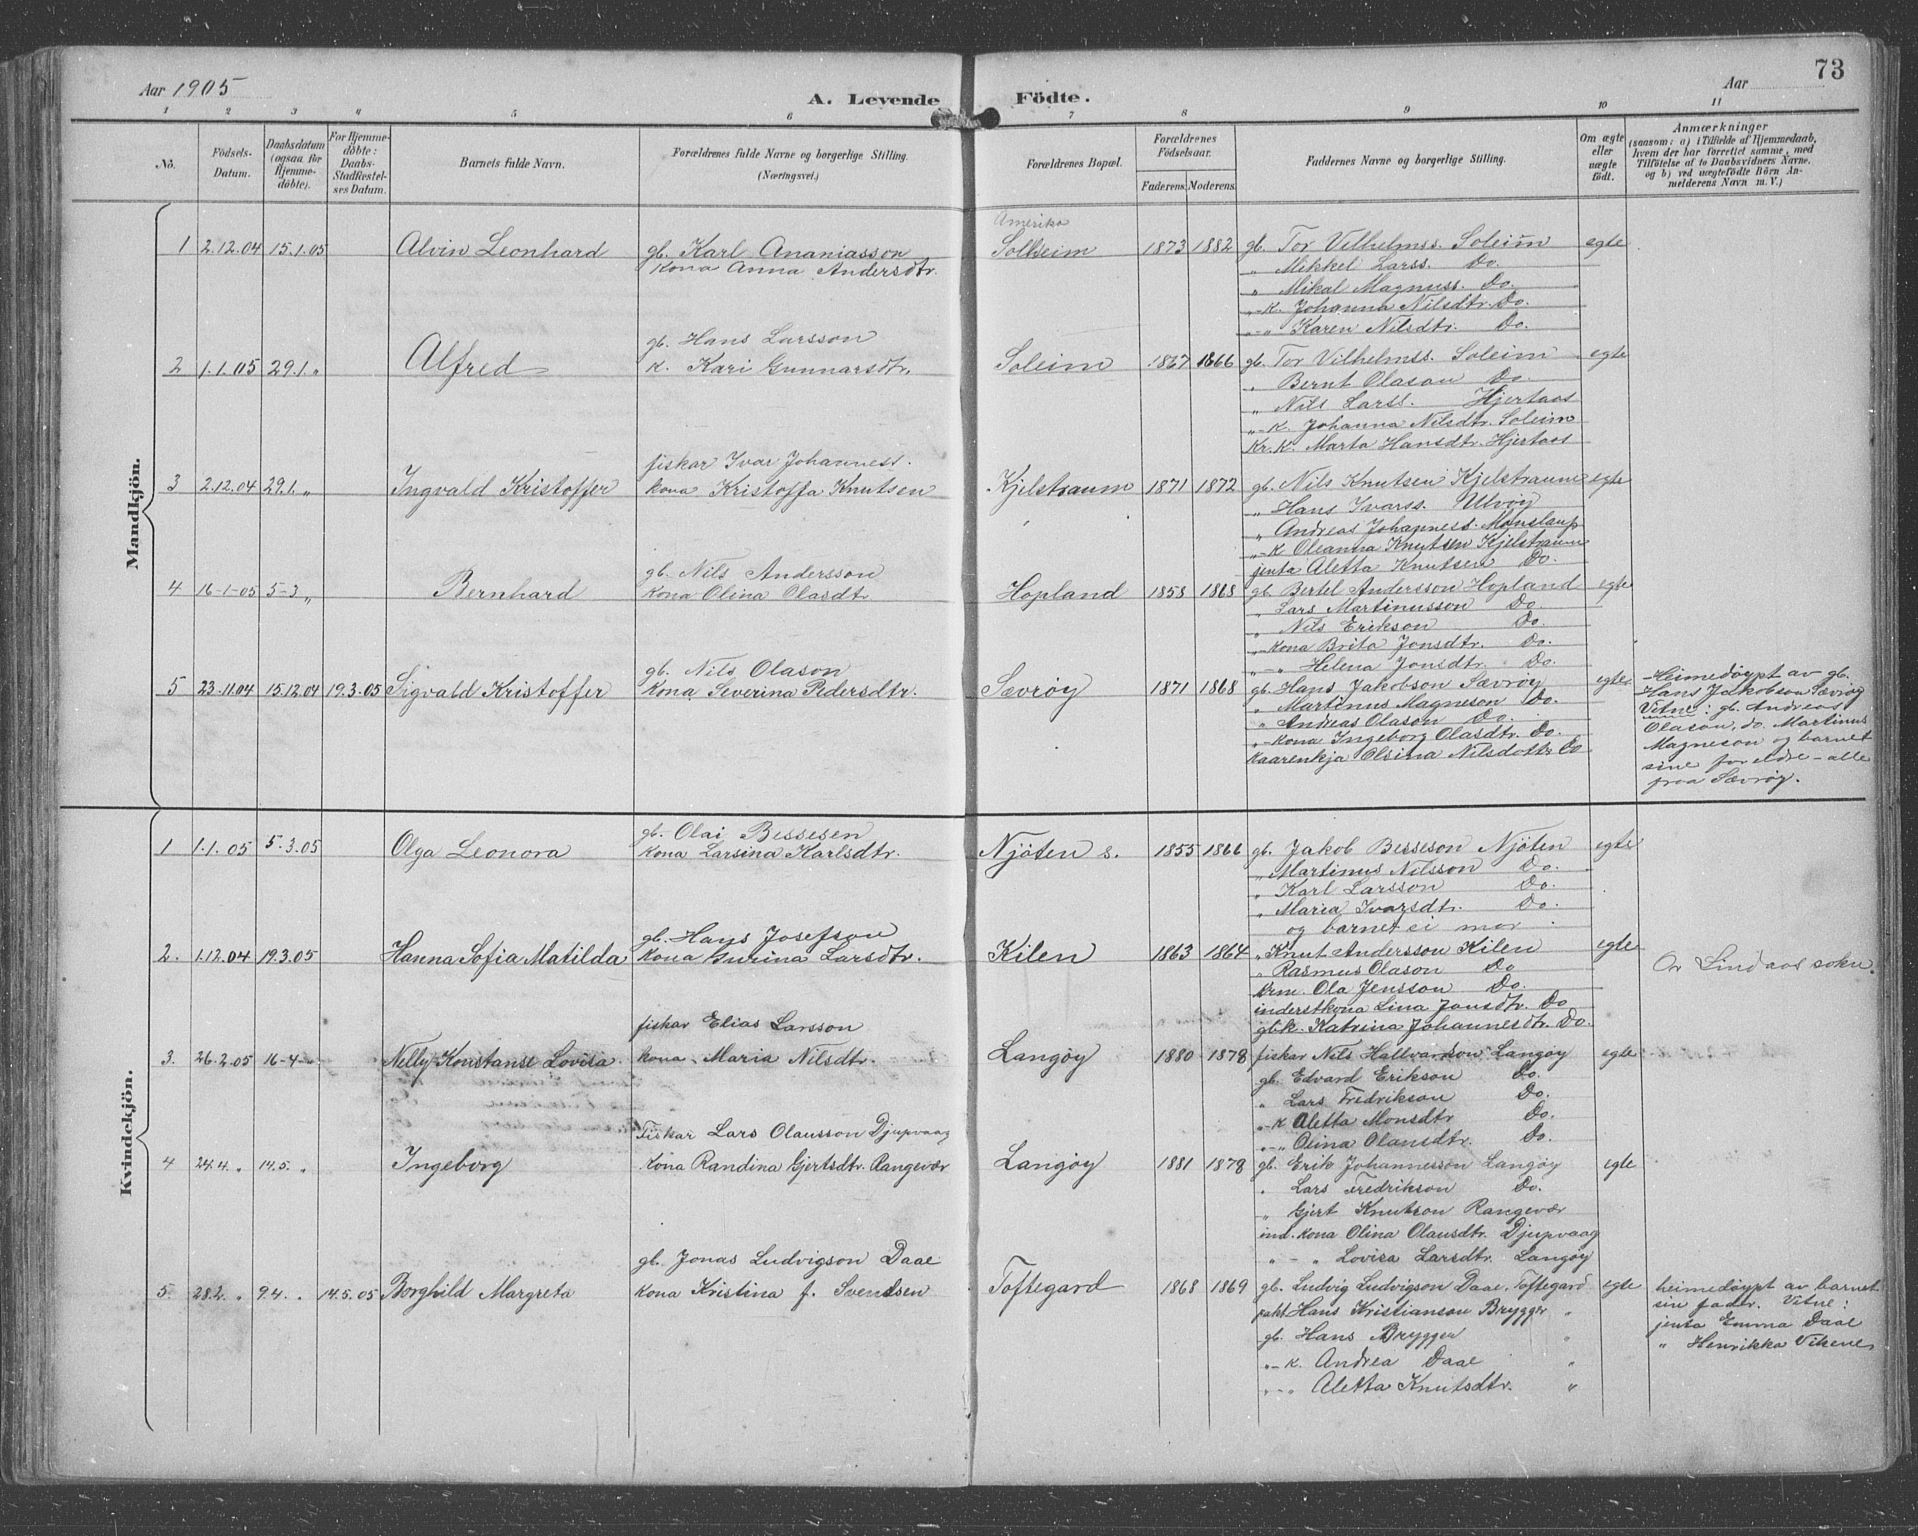 Aar 1905
A. Levende Födte.
Aar
73
1 2 3 4 5 6 7 8 9 10 11
No.
Födsels-Datum.
Daabsdatum (ogsaa for Hjemme-döbte).
For Hjemme-döbte: Daabs-Stadfæstel-ses Datum.
Barnets fulde Navn.
Forældrenes fulde Navne og borgerlige Stilling.
(Næringsvei.)
Forældrenes Bopæl.
Forældrenes Födselsaar.
Faderens. Moderens.
Faddernes Navne og borgerlige Stilling.
Om ægte eller uægte födt.
Anmærkninger
(saasom: a) i Tilfælde af Hjemmedaab,
hvem der har forrettet samme, med
Tilföielse af to Daabsvidners Navne.
og b) ved uægtefödte Börn An-
melderens Navn m. V.)
Mandkjön.
Amerika
1 2.12.04 15.1.05 Alvin Leonhard gb. Karl Ananiasson Solheim 1873 1882 gb. Tor Vilhelmss. Soleim egte
kona Anna Andersdtr. " Mikkel Larss. Do.
" Mikal Magnuss. Do.
"-k. Johanna Nilsdtr. Do.
"-" Karen Nilsdtr. Do.
gb. Hans Larsson
2 1.1.05 29.1 " Alfred k. Kari Gunnarsdtr. Soleim 1867 1866 gb. Tor Vilhelmss. Soleim egte
" Bernt Olason Do.
" Nils Larss. Hjertaas
"-k. Johanna Nilsdtr. Soleim
Kr. k. Marta Hansdtr. Hjertaas
fiskar Ivar Johanness.
3 2.12.04 29.1. " Ingvald Kristoffer kona Kristoffa Knutsen Kjelstraum 1871 1872 gb. Nils Knutsen Kjelstraum egte
" Hans Ivarss. Ulvøy
" Andreas Johanness. Monslaup
"-k Oleanna Knutsen Kjelstraum
jenta Aletta Knutsen Do.
gb. Nils Andersson
4 16-1-05 5-3 " Bernhard kona Olina Olasdtr Hopland 1858 1868 gb. Bertel Andersson Hopland egte
" Lars Martinusson Do.
" Nils Erikson Do.
"-kona Brita Jonsdtr. Do.
"-" Helena Jonsdtr. Do.
gb. Nils Olason
5 23.11.04 15.12.04 19.3.05 Sigvald Kristoffer kona Severina Pedersdtr. Sævrøy 1871 1868 gb. Hans Jakobson Sævrøy egte
" Martinus Magneson Do.
" Andreas Olason Do.
"-kona Ingeborg Olasdtr. Do.
kaarenkja Olsina Nilsdottr Do
Heimedøypt av gb.
Hans Jakobson Sævrøy
Vitne: gb. Andreas
Olason, do. Martinus
Magneson og barnet
sine foreldre - alle
paa Sævrøy.
Kvindekjön.
gb. Olai Bessesen
1 1.1.05 5.3.05 Olga Leonora kona Larsina Karlsdtr. Njøten s. 1855 1866 gb. Jakob Besseson Njøten egte
" Martinus Nilsson Do.
" Karl Larsson Do.
" Maria Ivarsdtr. Do.
og barnet si mor
gb. Hans Josefson
2. 1.12.04 19.3.05 Hanna Sofia Matilda kona Gurina Larsdtr. Kilen 1863 1864 " Knut Andersson Kilen egte Or Lindaas sokn.
" Rasmus Olason Do
krm. Ola Jensson Do.
inderstkona Lina Jonsdtr. Do
gb.k. Katrina Johannesdtr. Do.
fiskar Elias Larsson
3. 26.2.05 16-4-" Nelly Konstanse Lovisa kona Maria Nilsdtr. Langøy 1880 1878 fiskar Nils Hallvardson Langøy egte
gb. Edvard Erikson Do.
" Lars Fredrikson Do.
"-k Aletta Monsdtr Do.
"-" Olina Olansdtr. Do.
Fiskar Lars Olausson Djupvaag
4 24.4. " 14.5. " Ingeborg kona Randina Gjertsdtr. Rangevær Langøy 1881 1878 gb. Erik Johannesson Langøy egte
" Lars Fredrikson Do.
" Gjert Knutson Rangevær
ind. kona Olina Olausdtr. Djupvaag
" - " Lovisa Larsdtr. Langøy
gb. Jonas Ludvigson Daae
5. 28.2. " 9.4. " 14.5.05 Borghild Margreta kona Kristina f. Svendsen Toftegard 1868 1869 gb. Ludvig Ludvigson Daae. Toftegard egte
Hans Kristianson Brygger "
gb. Hans Brygger "
"-k. Andrea Daae "
"-" Aletta Knutsdtr. "
heimedøypt av barnet
sin fader. Vitne:
jenta Emma Daae
" Henrikka Vikene